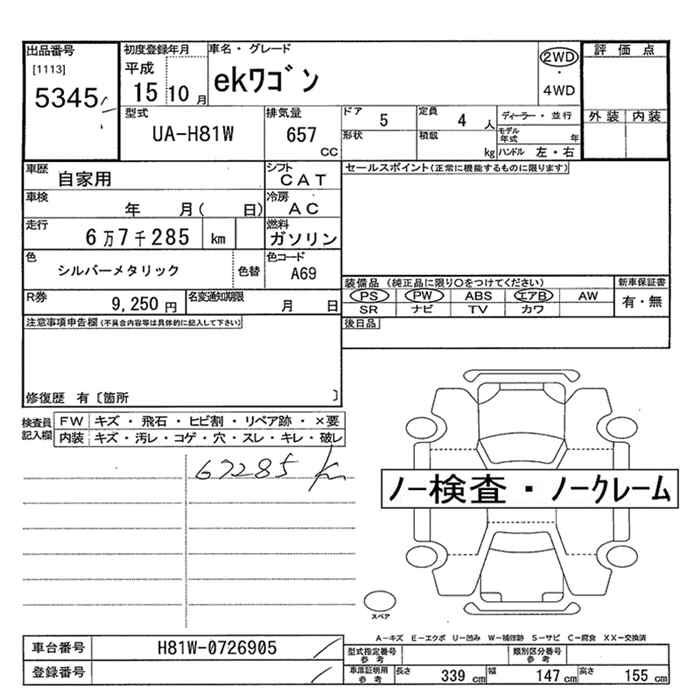 出品番号 初度登録年月 車名・グレード 2WD 評価点
[1113] 平成 ekワゴン ・
5345 15 10月 4WD
型式 排気量 ドア 5 定員 4人 ディーラー・並行 外装 内装
UA-H81W 657 cc 形状 積載 kg モデル年式 年
ハンドル 左・右
車歴 自家用 シフト CAT セールスポイント(正常に機能するものに限ります)
車検 年 月( 日)冷房 AC
走行 6万7千285 km 燃料 ガソリン
色 シルバーメタリック 色替 色コード A69
装備品 (純正品に限り○をつけてください) 新車保証書
R券 9,250円 名変通知期限 月 日 PS PW ABS エアB AW 有・無
SR ナビ TV カワ
注意事項申告欄(不具合内容等は具体的に記入して下さい) 後日品
修復歴 有〔箇所 〕
検査員記入欄 FW キズ・飛石・ヒビ割・リペア跡・×要
内装 キズ・汚レ・コゲ・穴・スレ・キレ・破レ
67285 km
ノー検査・ノークレーム
スペア
A－キズ E－エクボ U－凹み W－補修跡 S－サビ C－腐食 XX－交換済
車台番号 H81W-0726905 型式指定番号参考 類別区分番号参考
登録番号 車庫証明用参考 長さ 339 cm 幅 147 cm 高さ 155 cm